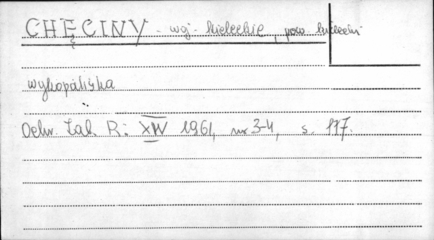 CHĘCINY - woj. kieleckie, pow. kielecki
wykopaliska
Ochr. Zab. R: XIV 1961, nr 3-4, s. 117.